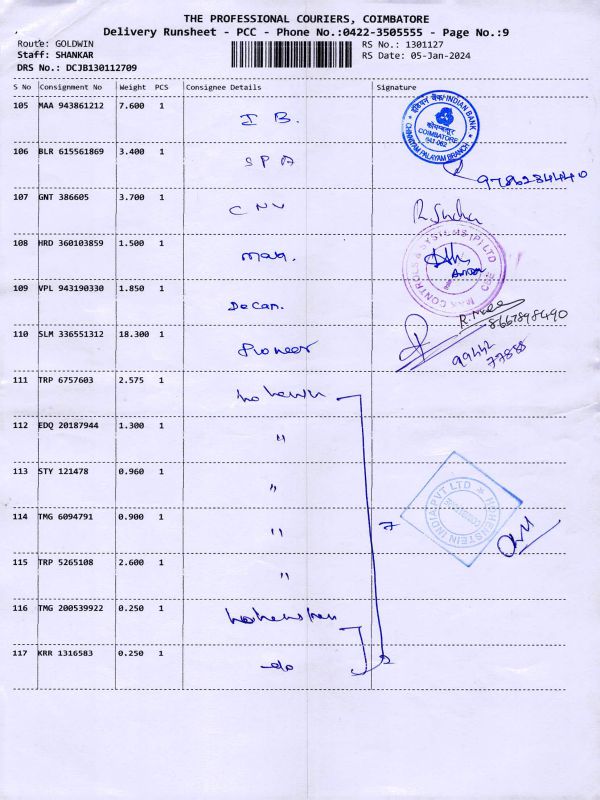 THE PROFESSIONAL COURIERS, COIMBATORE
Delivery Runsheet - PCC - Phone No.:0422-3505555 - Page No.:9
Route: GOLDWIN
RS No.: 1301127
Staff: SHANKAR
RS Date: 05-Jan-2024
DRS No.: DCJB130112709
S No Consignment No Weight PCS Consignee Details Signature
105 MAA 943861212 7.600 1 I B.
INDIAN BANK
COIMBATORE
641 062
106 BLR 615561869 3.400 1 S P A
9786284440
107 GNT 386605 3.700 1 C N V
108 HRD 360103859 1.500 1 mag.
CONTROLS & SYSTEMS (P) LTD
CBE
109 VPL 943190330 1.850 1 Decan.
8667898490
110 SLM 336551312 18.300 1 Pioneer
99442
77888
111 TRP 6757603 2.575 1
112 EDQ 20187944 1.300 1 "
113 STY 121478 0.960 1 "
HOHENSTEIN INDIA PVT LTD
114 TMG 6094791 0.900 1 " 7
115 TRP 5265108 2.600 1 "
116 TMG 200539922 0.250 1
117 KRR 1316583 0.250 1 do